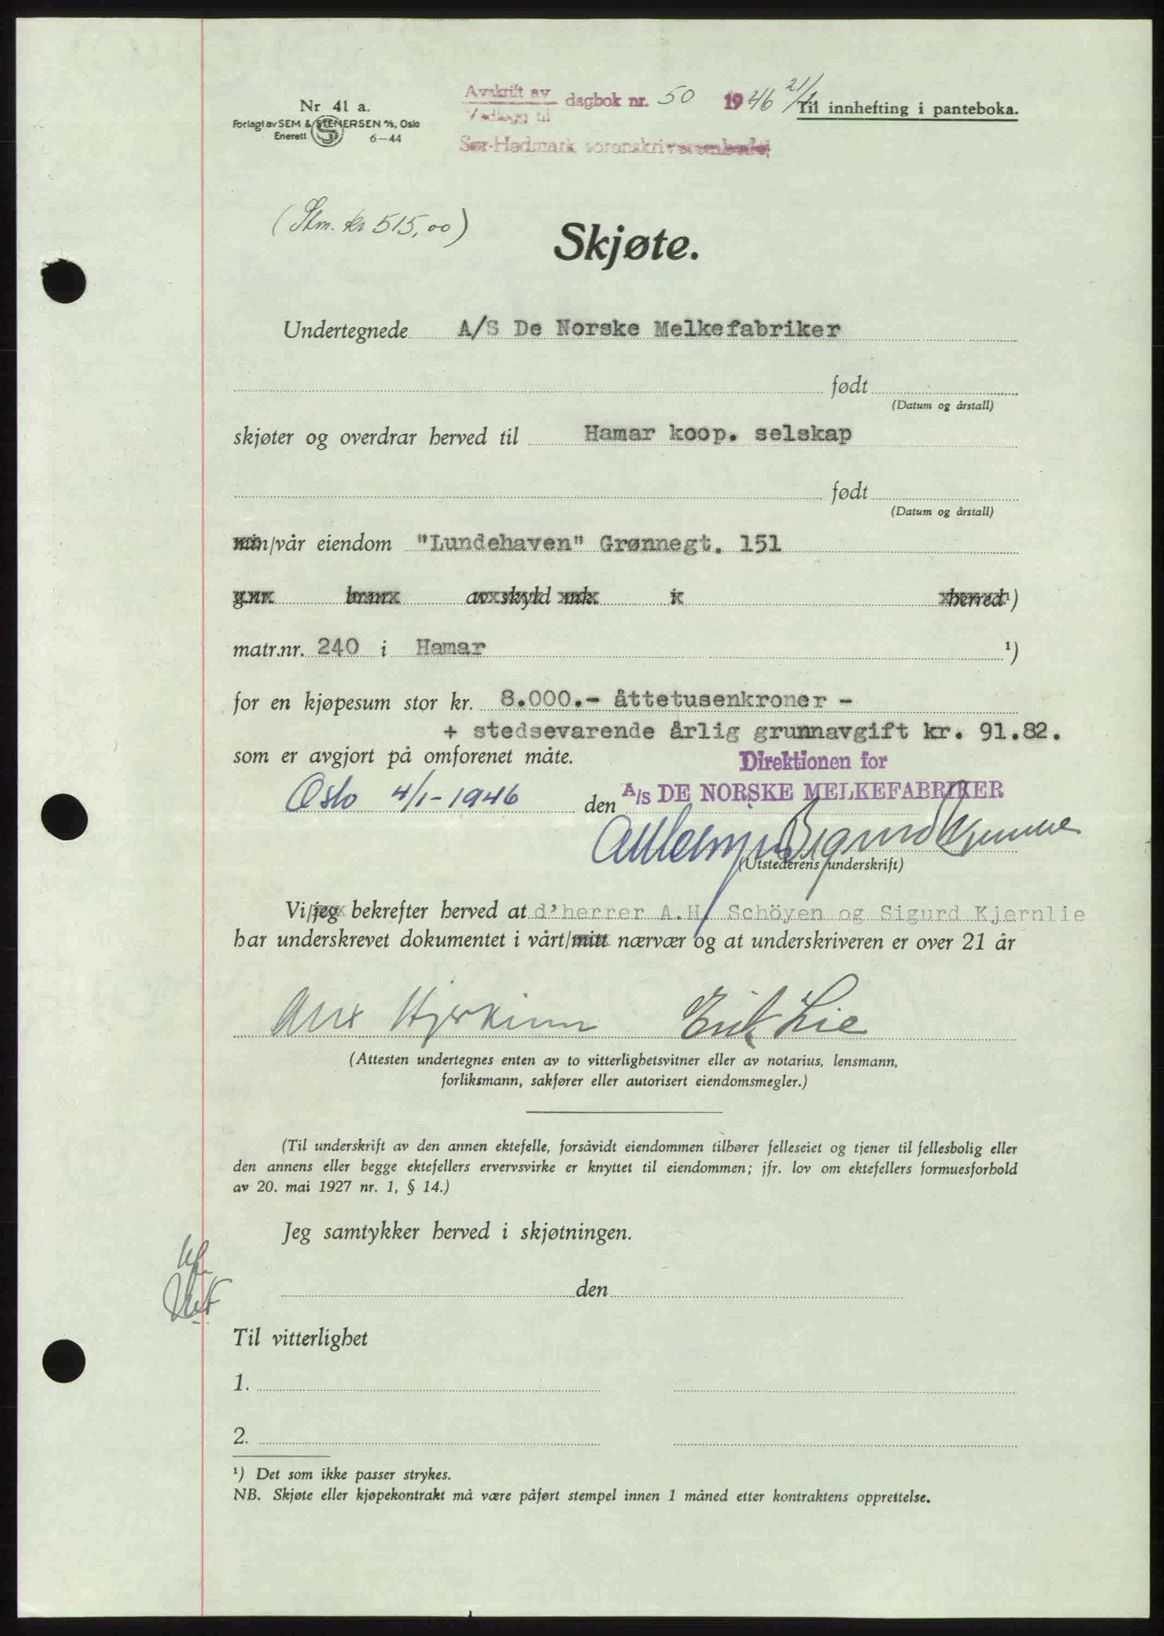 Nr 41 a.
Forlagt av SEM & STENERSEN A/S, Oslo
Enerett 6-44
Avskrift av
Vedlegg til
dagbok nr. 50 1946 21/1
Til innhefting i panteboka.
Sør-Hedmark sorenskriverembede
(Stm. kr 515,00)
Skjøte.
Undertegnede A/S De Norske Melkefabriker
født
(Datum og årstall)
skjøter og overdrar herved til Hamar koop. selskap
født
(Datum og årstall)
min/vår eiendom "Lundehaven" Grønnegt. 151
g.nr. br.nr. av skyld mk. i herred ¹)
matr.nr. 240 i Hamar ¹)
for en kjøpesum stor kr. 8.000.- åttetusenkroner -
+ stedsevarende årlig grunnavgift kr. 91.82.
som er avgjort på omforenet måte.
Direktionen for
Oslo 4/1-1946 den A/S DE NORSKE MELKEFABRIKER
(Utstederens underskrift)
Vi/jeg bekrefter herved at d'herrer A.H. Schöyen og Sigurd Kjernlie
har underskrevet dokumentet i vårt/mitt nærvær og at underskriveren er over 21 år
Erik Lie
(Attesten undertegnes enten av to vitterlighetsvitner eller av notarius, lensmann,
forliksmann, sakfører eller autorisert eiendomsmegler.)
(Til underskrift av den annen ektefelle, forsåvidt eiendommen tilhører felleseiet og tjener til fellesbolig eller
den annens eller begge ektefellers ervervsvirke er knyttet til eiendommen; jfr. lov om ektefellers formuesforhold
av 20. mai 1927 nr. 1, § 14.)
Jeg samtykker herved i skjøtningen.
den
Til vitterlighet
1.
2.
¹) Det som ikke passer strykes.
NB. Skjøte eller kjøpekontrakt må være påført stempel innen 1 måned etter kontraktens opprettelse.